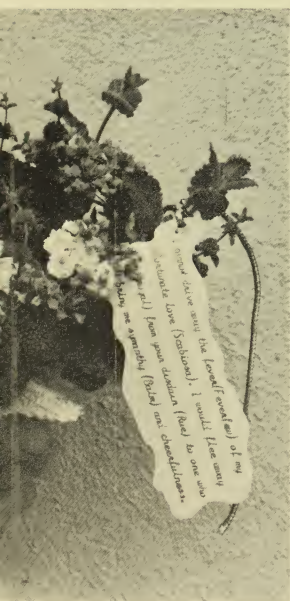 would drive away the fever (Feverfew) of my
unfortunate love (Scabiosa). I would flee away
from your disdain (Rue) to one who
bring me sympathy (Balm) and cheerfulness.